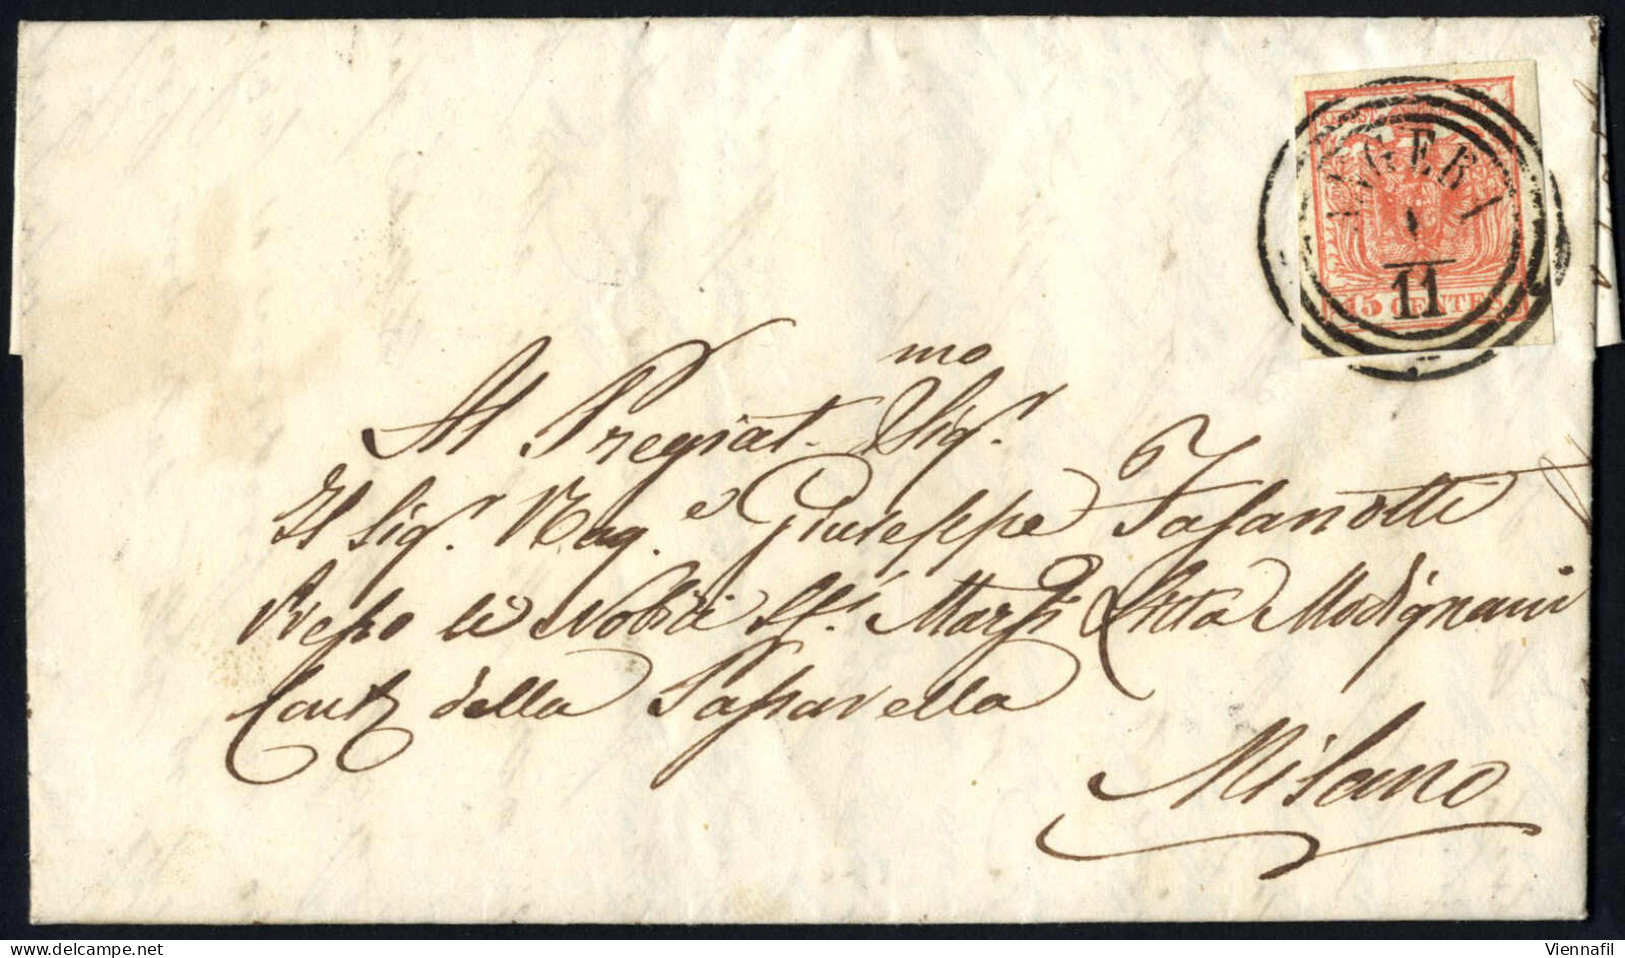 ANGERA
11
15 CENTES
Al Pregiat.mo Sigr.
Il Sigr. Rag.e Giuseppe Fasanotti
Presso li Nobili Sri. Marsi Litta Modignani
Cont. della Passarella
Milano
delcampe.net
Viennafil